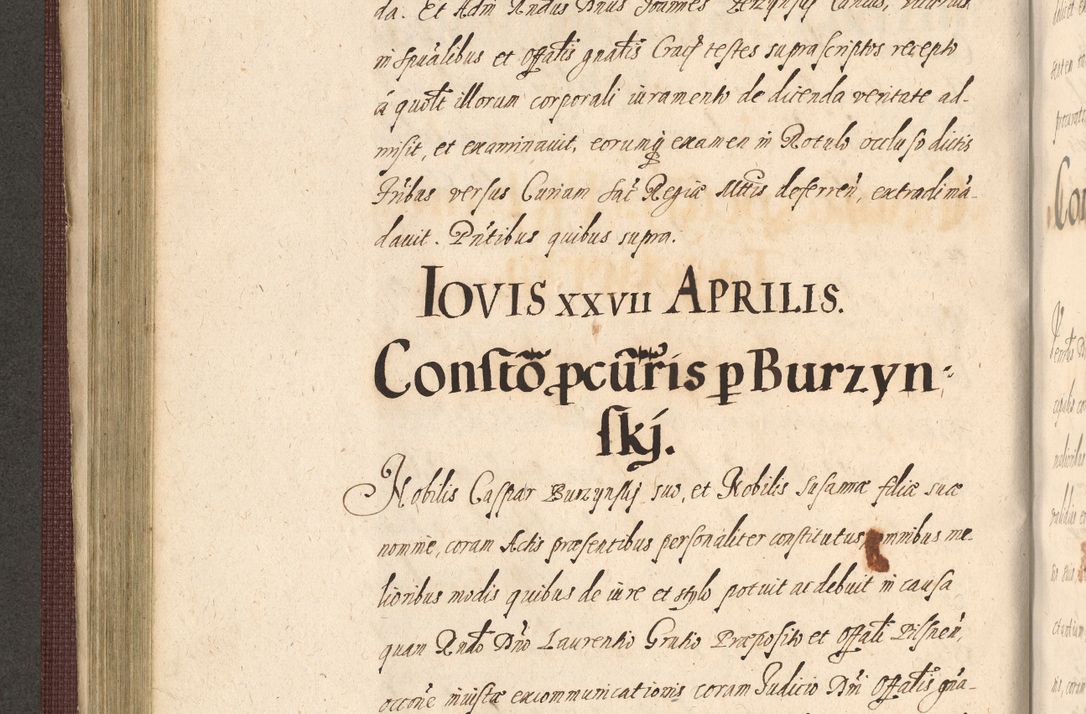 da. Et Adm Rndus Dnus Joannes
in Spũalibus et Offatis gnãtis Crac̃ testes supra scriptos recepto
á quolt illorum corporali iuramento de dicenda veritate ad-
misit, et examinauit, eorumq examen in Rotulo occluso dictis
Pribus versus Curiam Sac̃ Regiæ Mttis deferren̄, extradi mã-
dauit. Pñtibus quibus supra.
IOVIS XXVII APRILIS.
Constõ pcũris p Burzyn-
skj.
Nobilis Caspar Burzynskj suo, et Nobilis Susannæ filiæ suæ
nomine, coram Actis præsentibus personaliter constitutus omnibus me-
lioribus modis quibus de iure et stylo potuit ac debuit in causa
quam Rndo Dño Laurentio Grutio Præposito et Offali Pilsnen̄,
occõne iniustæ excommunicationis coram Judicio Dñi Offatis gñа-